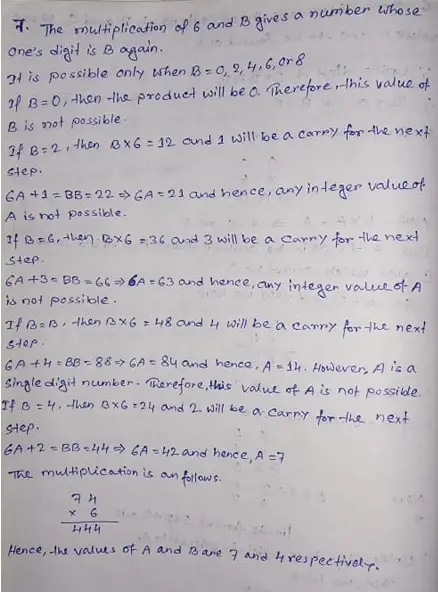 7. The multiplication of 6 and B gives a number whose
one's digit is B again.
It is possible only when B = 0, 2, 4, 6, or 8
If B = 0, then the product will be 0. Therefore, this value of
B is not possible.
If B = 2, then B×6 = 12 and 1 will be a carry for the next
step.
6A + 1 = BB = 22 ⇒ 6A = 21 and hence, any integer value of
A is not possible.
If B = 6, then B×6 = 36 and 3 will be a carry for the next
step.
6A + 3 = BB = 66 ⇒ 6A = 63 and hence, any integer value of A
is not possible.
If B = B, then B×6 = 48 and 4 will be a carry for the next
step.
6A + 4 = BB = 88 ⇒ 6A = 84 and hence, A = 14. However, A is a
single digit number. Therefore, this value of A is not possible.
If B = 4, then B×6 = 24 and 2 will be a carry for the next
step.
6A + 2 = BB = 44 ⇒ 6A = 42 and hence, A = 7
The multiplication is an follows.
74
× 6
444
Hence, the values of A and B are 7 and 4 respectively.